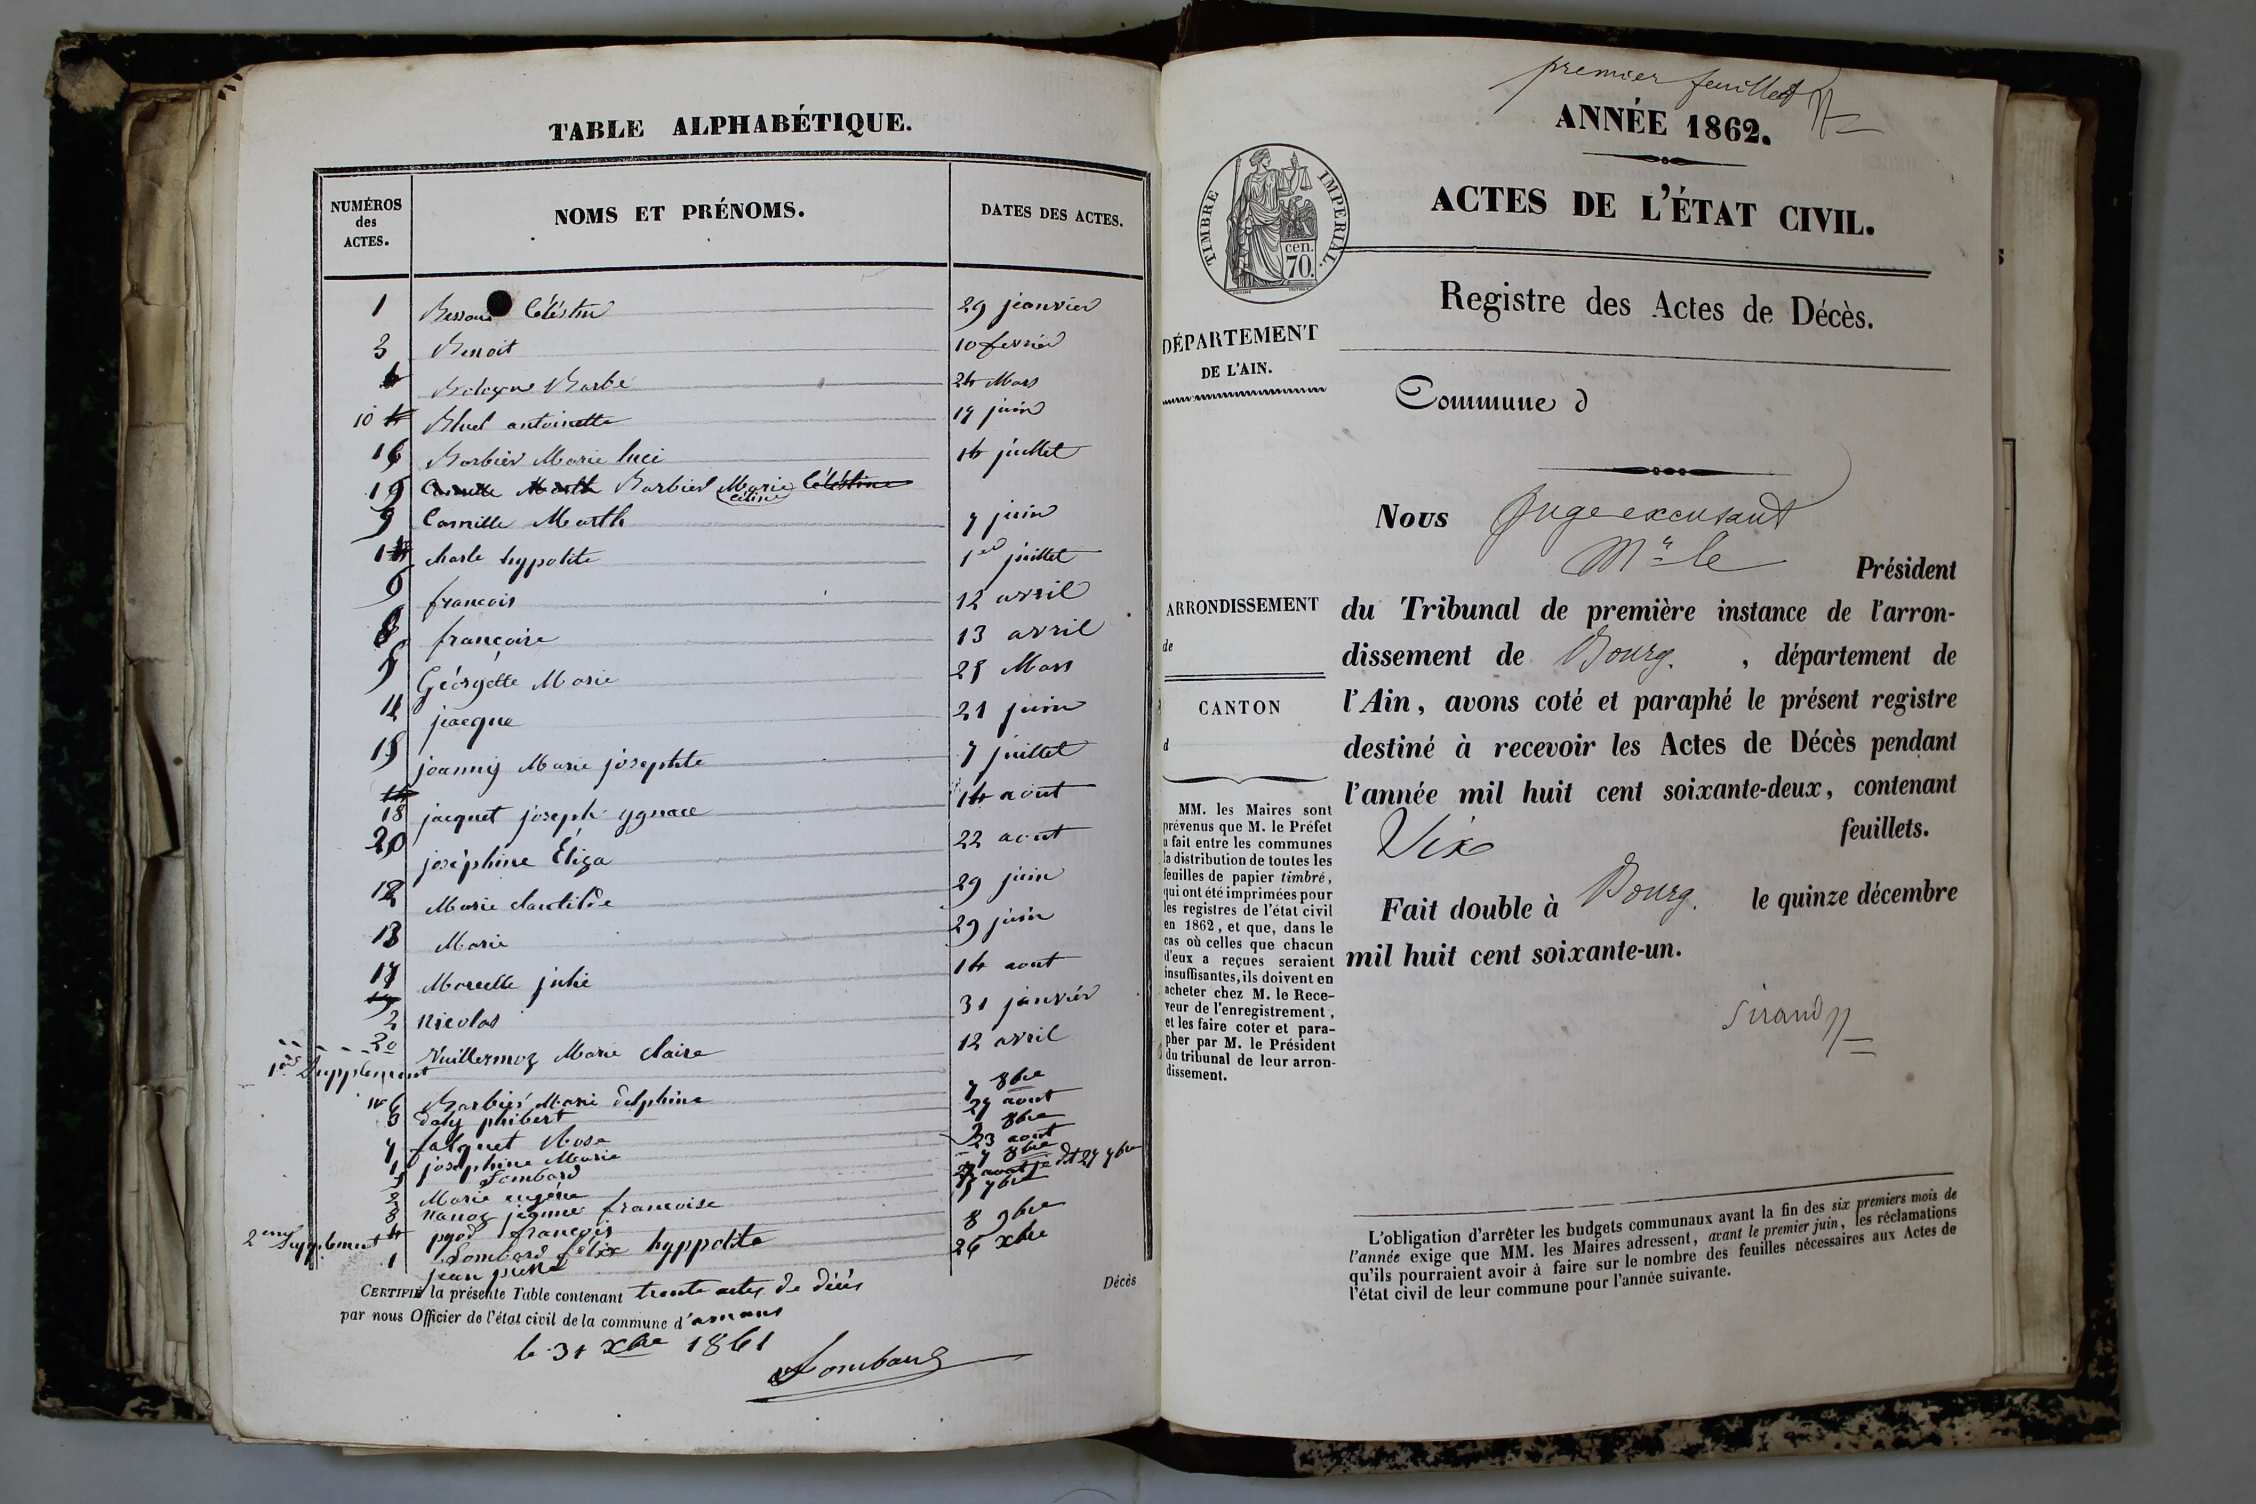 TABLE ALPHABÉTIQUE.
NUMÉROS
des
ACTES.
NOMS ET PRÉNOMS.
DATES DES ACTES.
1 Célestin 29 jeanvier
3 Benoit 10 fevrier
Bologne Barbe 24 Mars
10 Bluel antoinette 17 juin
16 Barbier Marie luci 14 juillet
19 Camille Marth Barbier Marie Céléstine
céline
9 Camille Marth 7 juin
11 charle hypolite 1er juillet
francois 12 avril
8 françoise 13 avril
5 Géorgette Marie 25 Mars
jacque 21 juin
15 joanny Marie joséphte 7 juillet
18 jacquet joseph ygnace 14 aout
20 joséphine Éliza 22 aout
12 Marie clautilde 29 juin
13 Marie 29 juin
17 Marcelle julie 14 aout
2 Nicolas 31 janviér
20 Vuillermoz Marie claire 12 avril
1er Supplement
6 Barbier Marie delphine 7 8bre
3 daly phibert 27 aout
7 falquet Rose 8bre
1 joséphine Marie 23 aout
5 Lombard 7 8bre
2 Marie eugénie
8 nanoz jeanne francoise 8 9bre
4 pyod françois
2eme Supplement
1 Lombard félix hyppolite 26 xbre
jean pierre
CERTIFIÉ la présente Table contenant trente actes de décés
par nous Officier de l'état civil de la commune d'arnans
le 31 xbre 1861
Lombard
Décès
premier feuillet
ANNÉE 1862.
ACTES DE L'ÉTAT CIVIL.
TIMBRE IMPERIAL.
cen.
70.
Registre des Actes de Décès.
DÉPARTEMENT
DE L'AIN.
Commune d
Nous Juge excusant
Mr le Président
ARRONDISSEMENT
de
CANTON
d
du Tribunal de première instance de l'arron-
dissement de Bourg. , département de
l'Ain, avons coté et paraphé le présent registre
destiné à recevoir les Actes de Décès pendant
l'année mil huit cent soixante-deux, contenant
Dix feuillets.
Fait double à Bourg. le quinze décembre
mil huit cent soixante-un.
Sirand
MM. les Maires sont
prévenus que M. le Préfet
a fait entre les communes
la distribution de toutes les
feuilles de papier timbré,
qui ont été imprimées pour
les registres de l'état civil
en 1862, et que, dans le
cas où celles que chacun
d'eux a reçues seraient
insuffisantes, ils doivent en
acheter chez M. le Rece-
veur de l'enregistrement,
et les faire coter et para-
pher par M. le Président
du tribunal de leur arron-
dissement.
L'obligation d'arrêter les budgets communaux avant la fin des six premiers mois de
l'année exige que MM. les Maires adressent, avant le premier juin, les réclamations
qu'ils pourraient avoir à faire sur le nombre des feuilles nécessaires aux Actes de
l'état civil de leur commune pour l'année suivante.